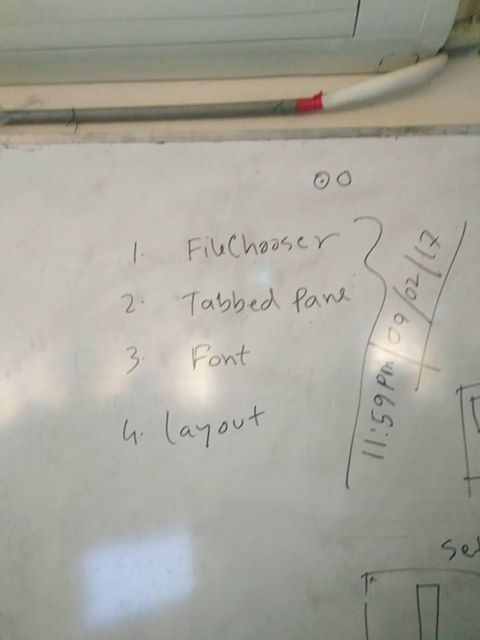 1. FileChooser
2. Tabbed Pane
3. Font
4. Layout
11:59pm/09/02/17